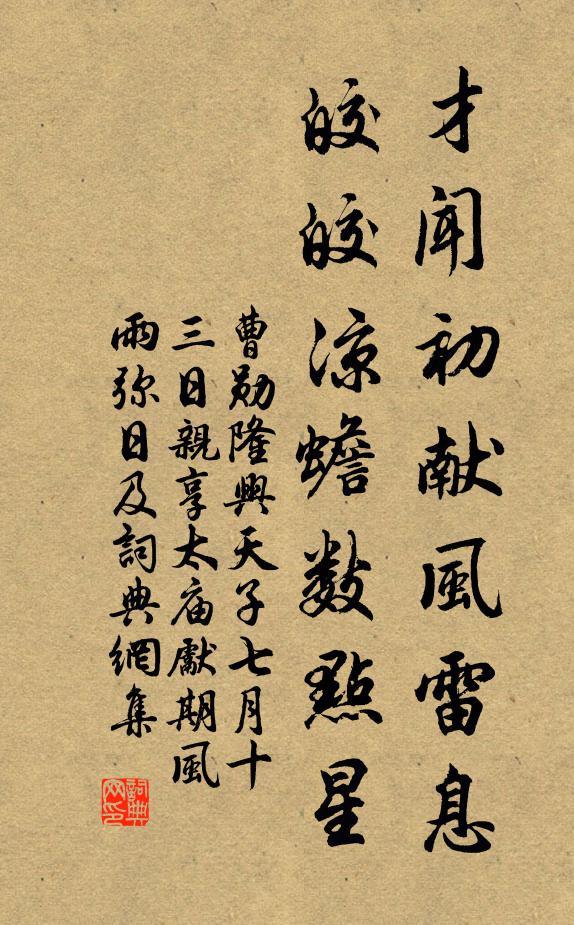 才闻初献風雷息
皎皎涼蟾数點星
曹勛隆興天子七月十
三日親享太庙獻期風
雨弥日及詞典網集
詞典
网印